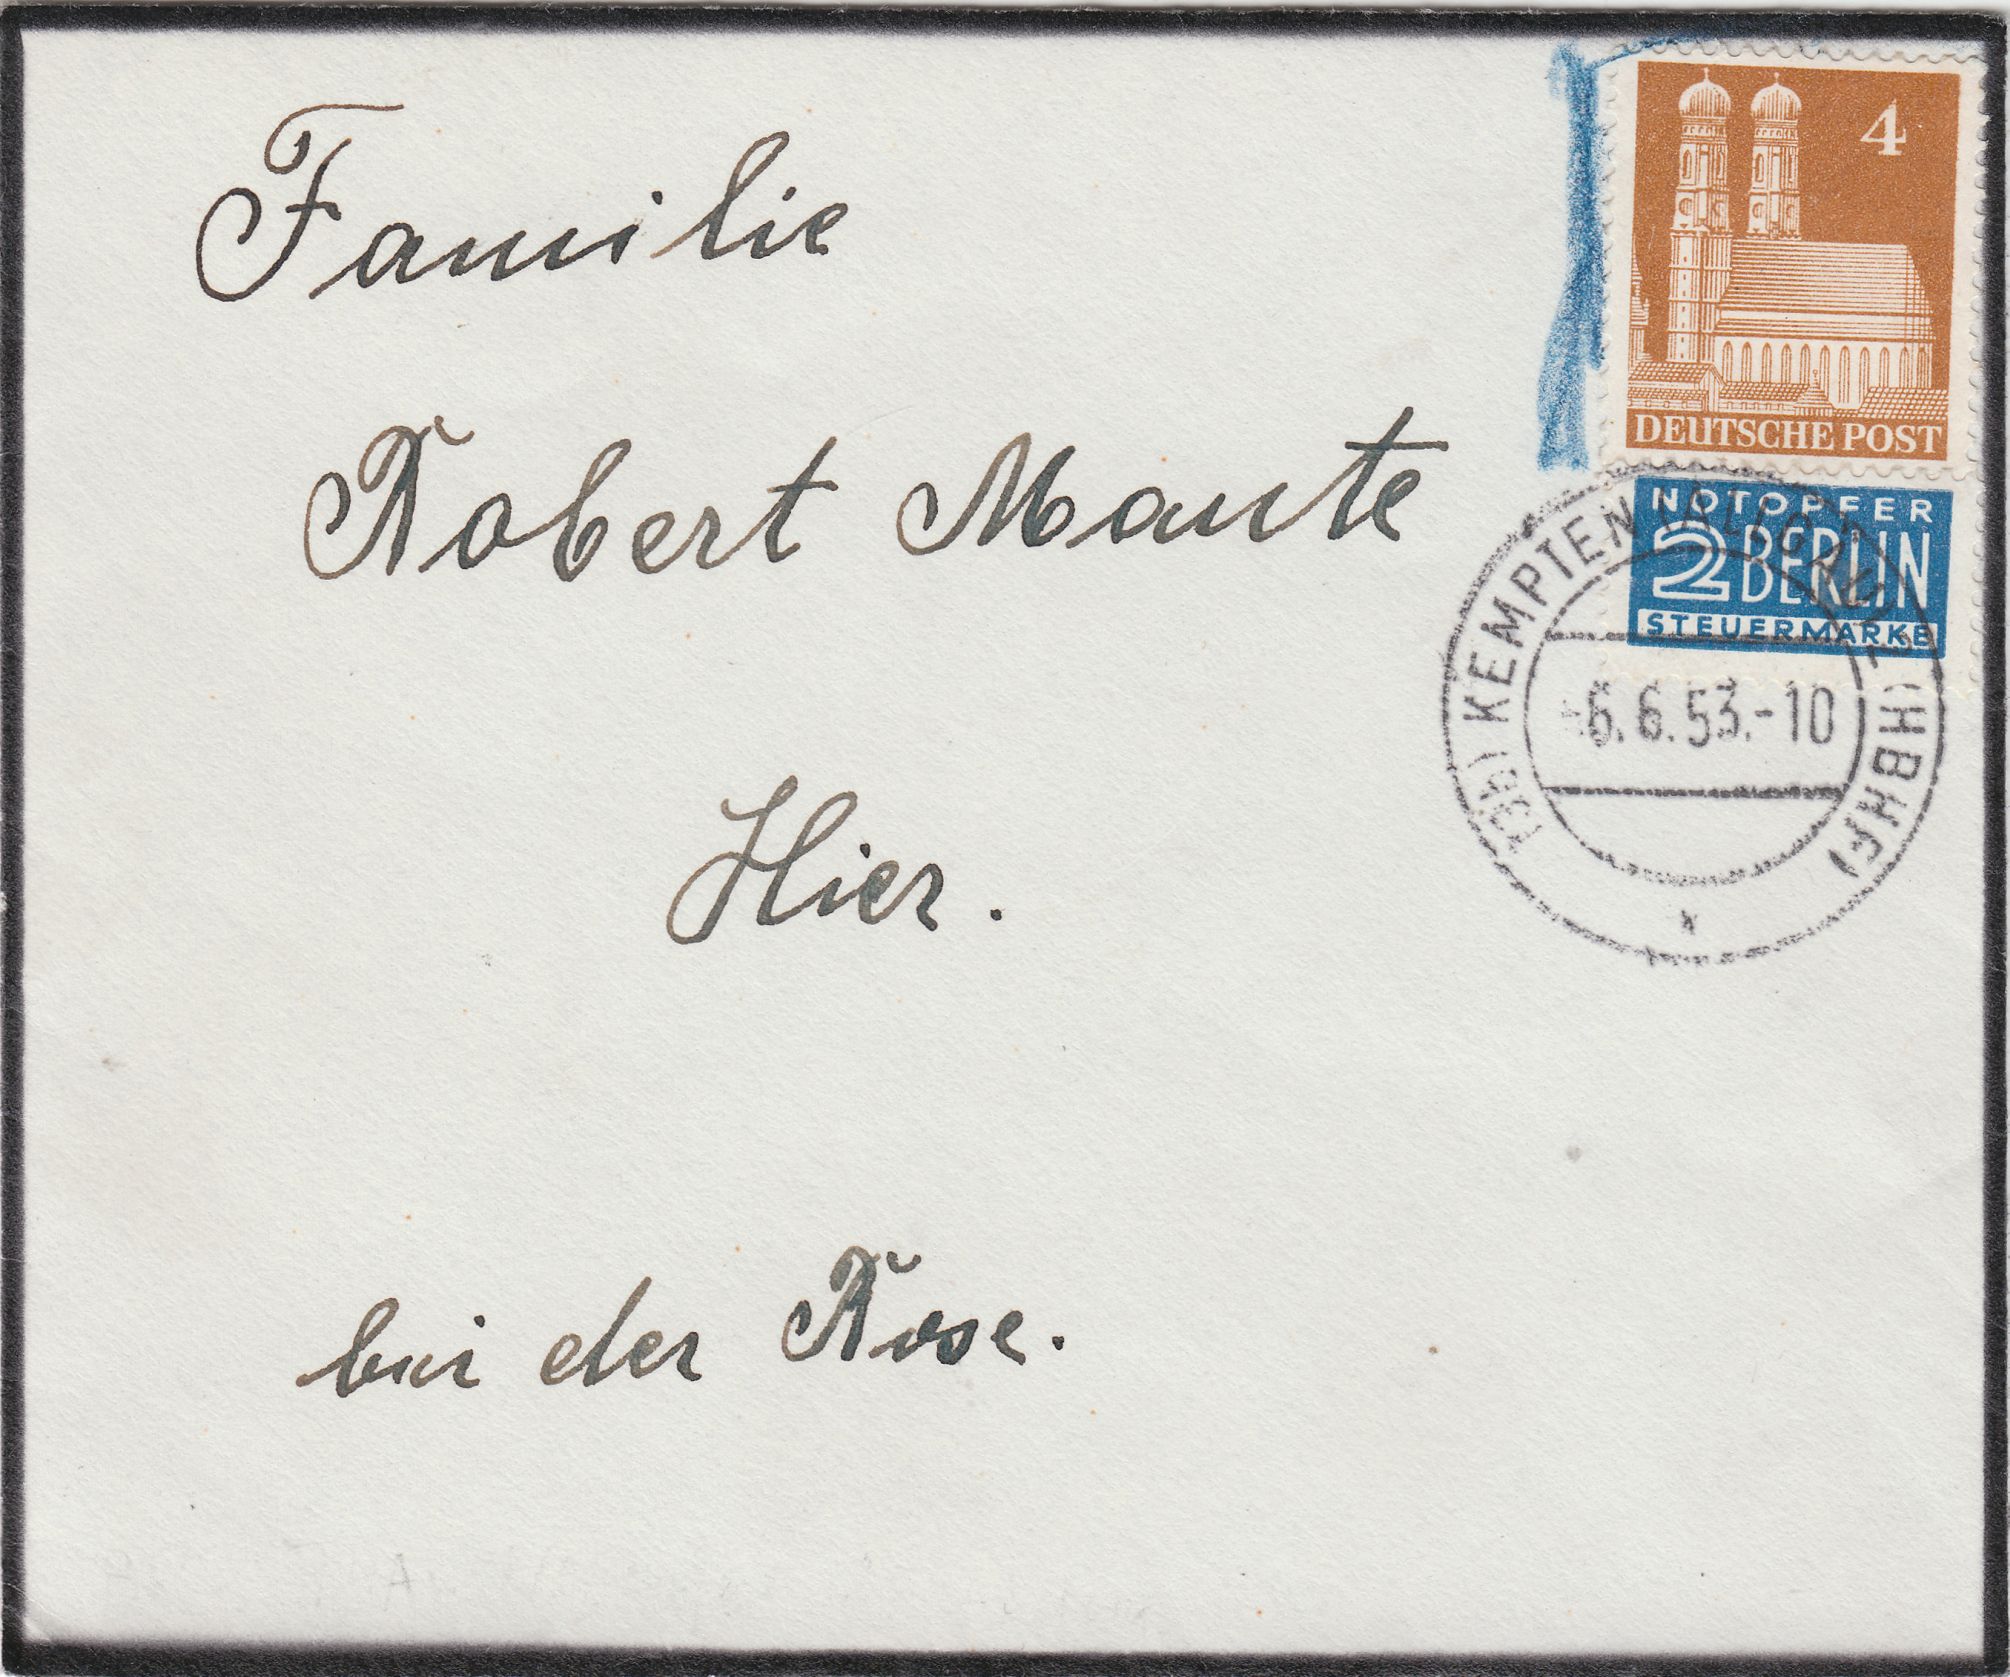 Familie
Robert Mante
Hier.
bei der Rose.
4
DEUTSCHE POST
NOTOPFER
2 BERLIN
STEUERMARKE
KEMPTEN (ALLGÄU) (HBHF)
-6.6.53.-10